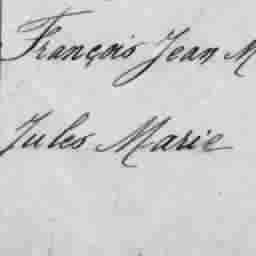 François Jean M
Jules Marie